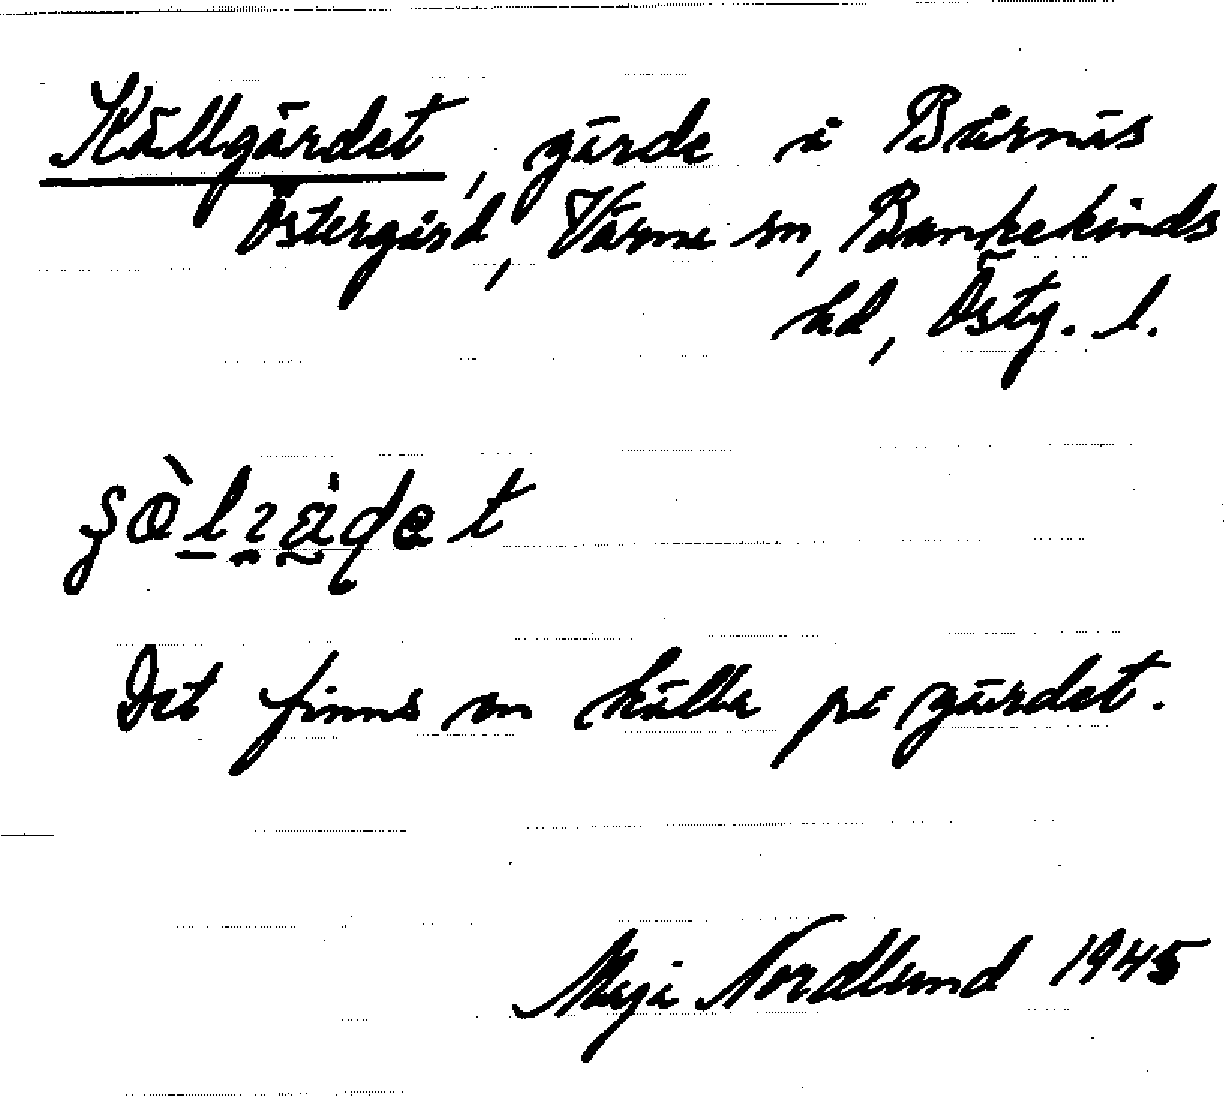 Källgärdet, gärde i Bårnäs
Östergård, Värna sn, Bankekinds
hd, Östg. l.
Det finns en källa på gärdet.
Maja Nordlund 1945